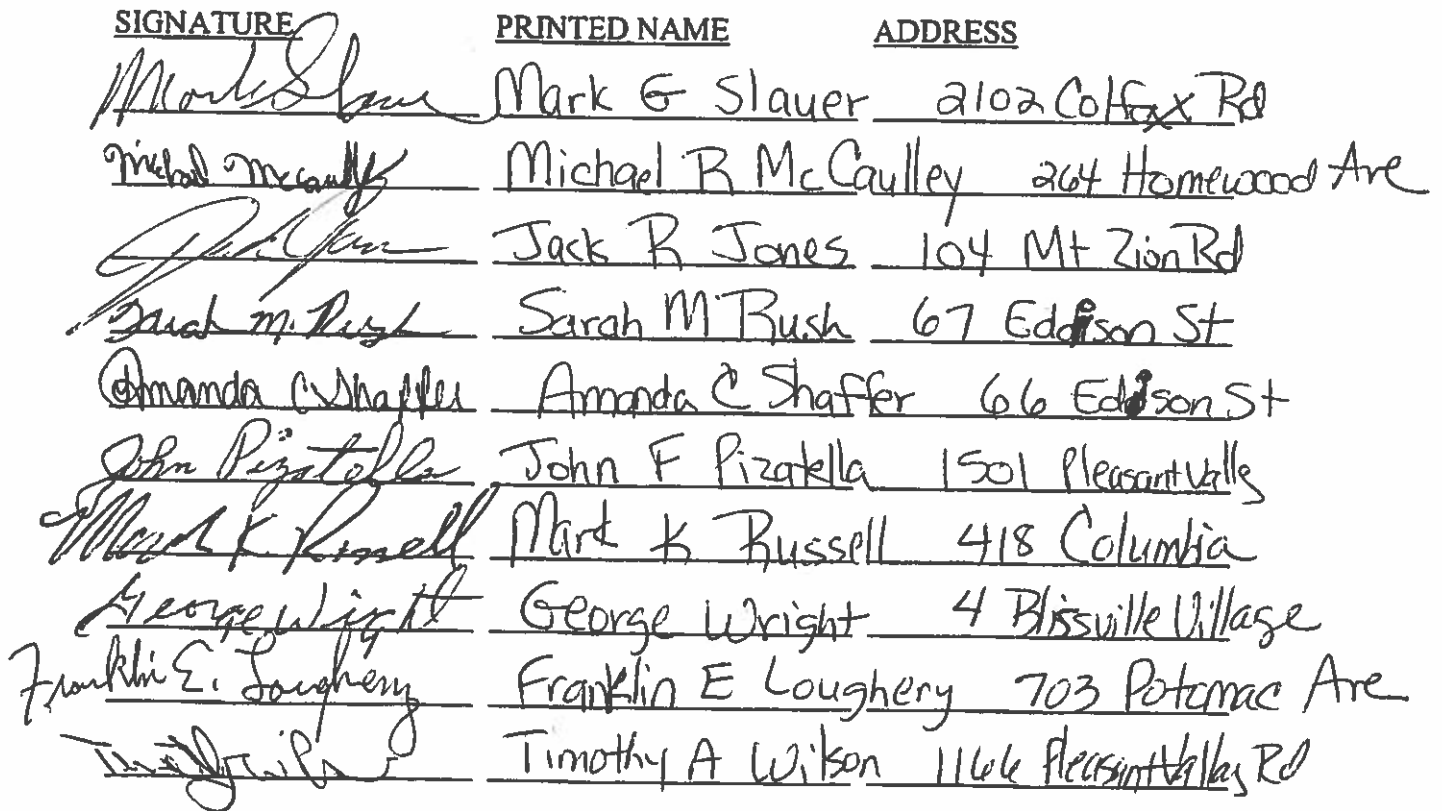 SIGNATURE PRINTED NAME ADDRESS
Mark G Slauer 2102 Colfax Rd
Michael McCaulley Michael R McCaulley 264 Homewood Ave
Jack R Jones 104 Mt Zion Rd
Sarah M. Rush Sarah M Rush 67 Eddison St
Amanda C Shaffer Amanda C Shaffer 66 Eddison St
John Pizatella John F Pizatella 1501 Pleasant Vally
Mark K. Russell Mark K Russell 418 Columbia
George Wright George Wright 4 Blissville Village
Franklin E. Loughery Franklin E Loughery 703 Potomac Ave
Timothy A Wilson 1166 Pleasant Valley Rd